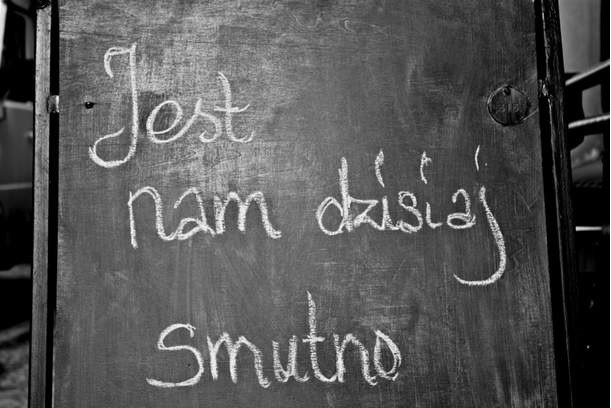 Jest
nam dzisiaj
smutno